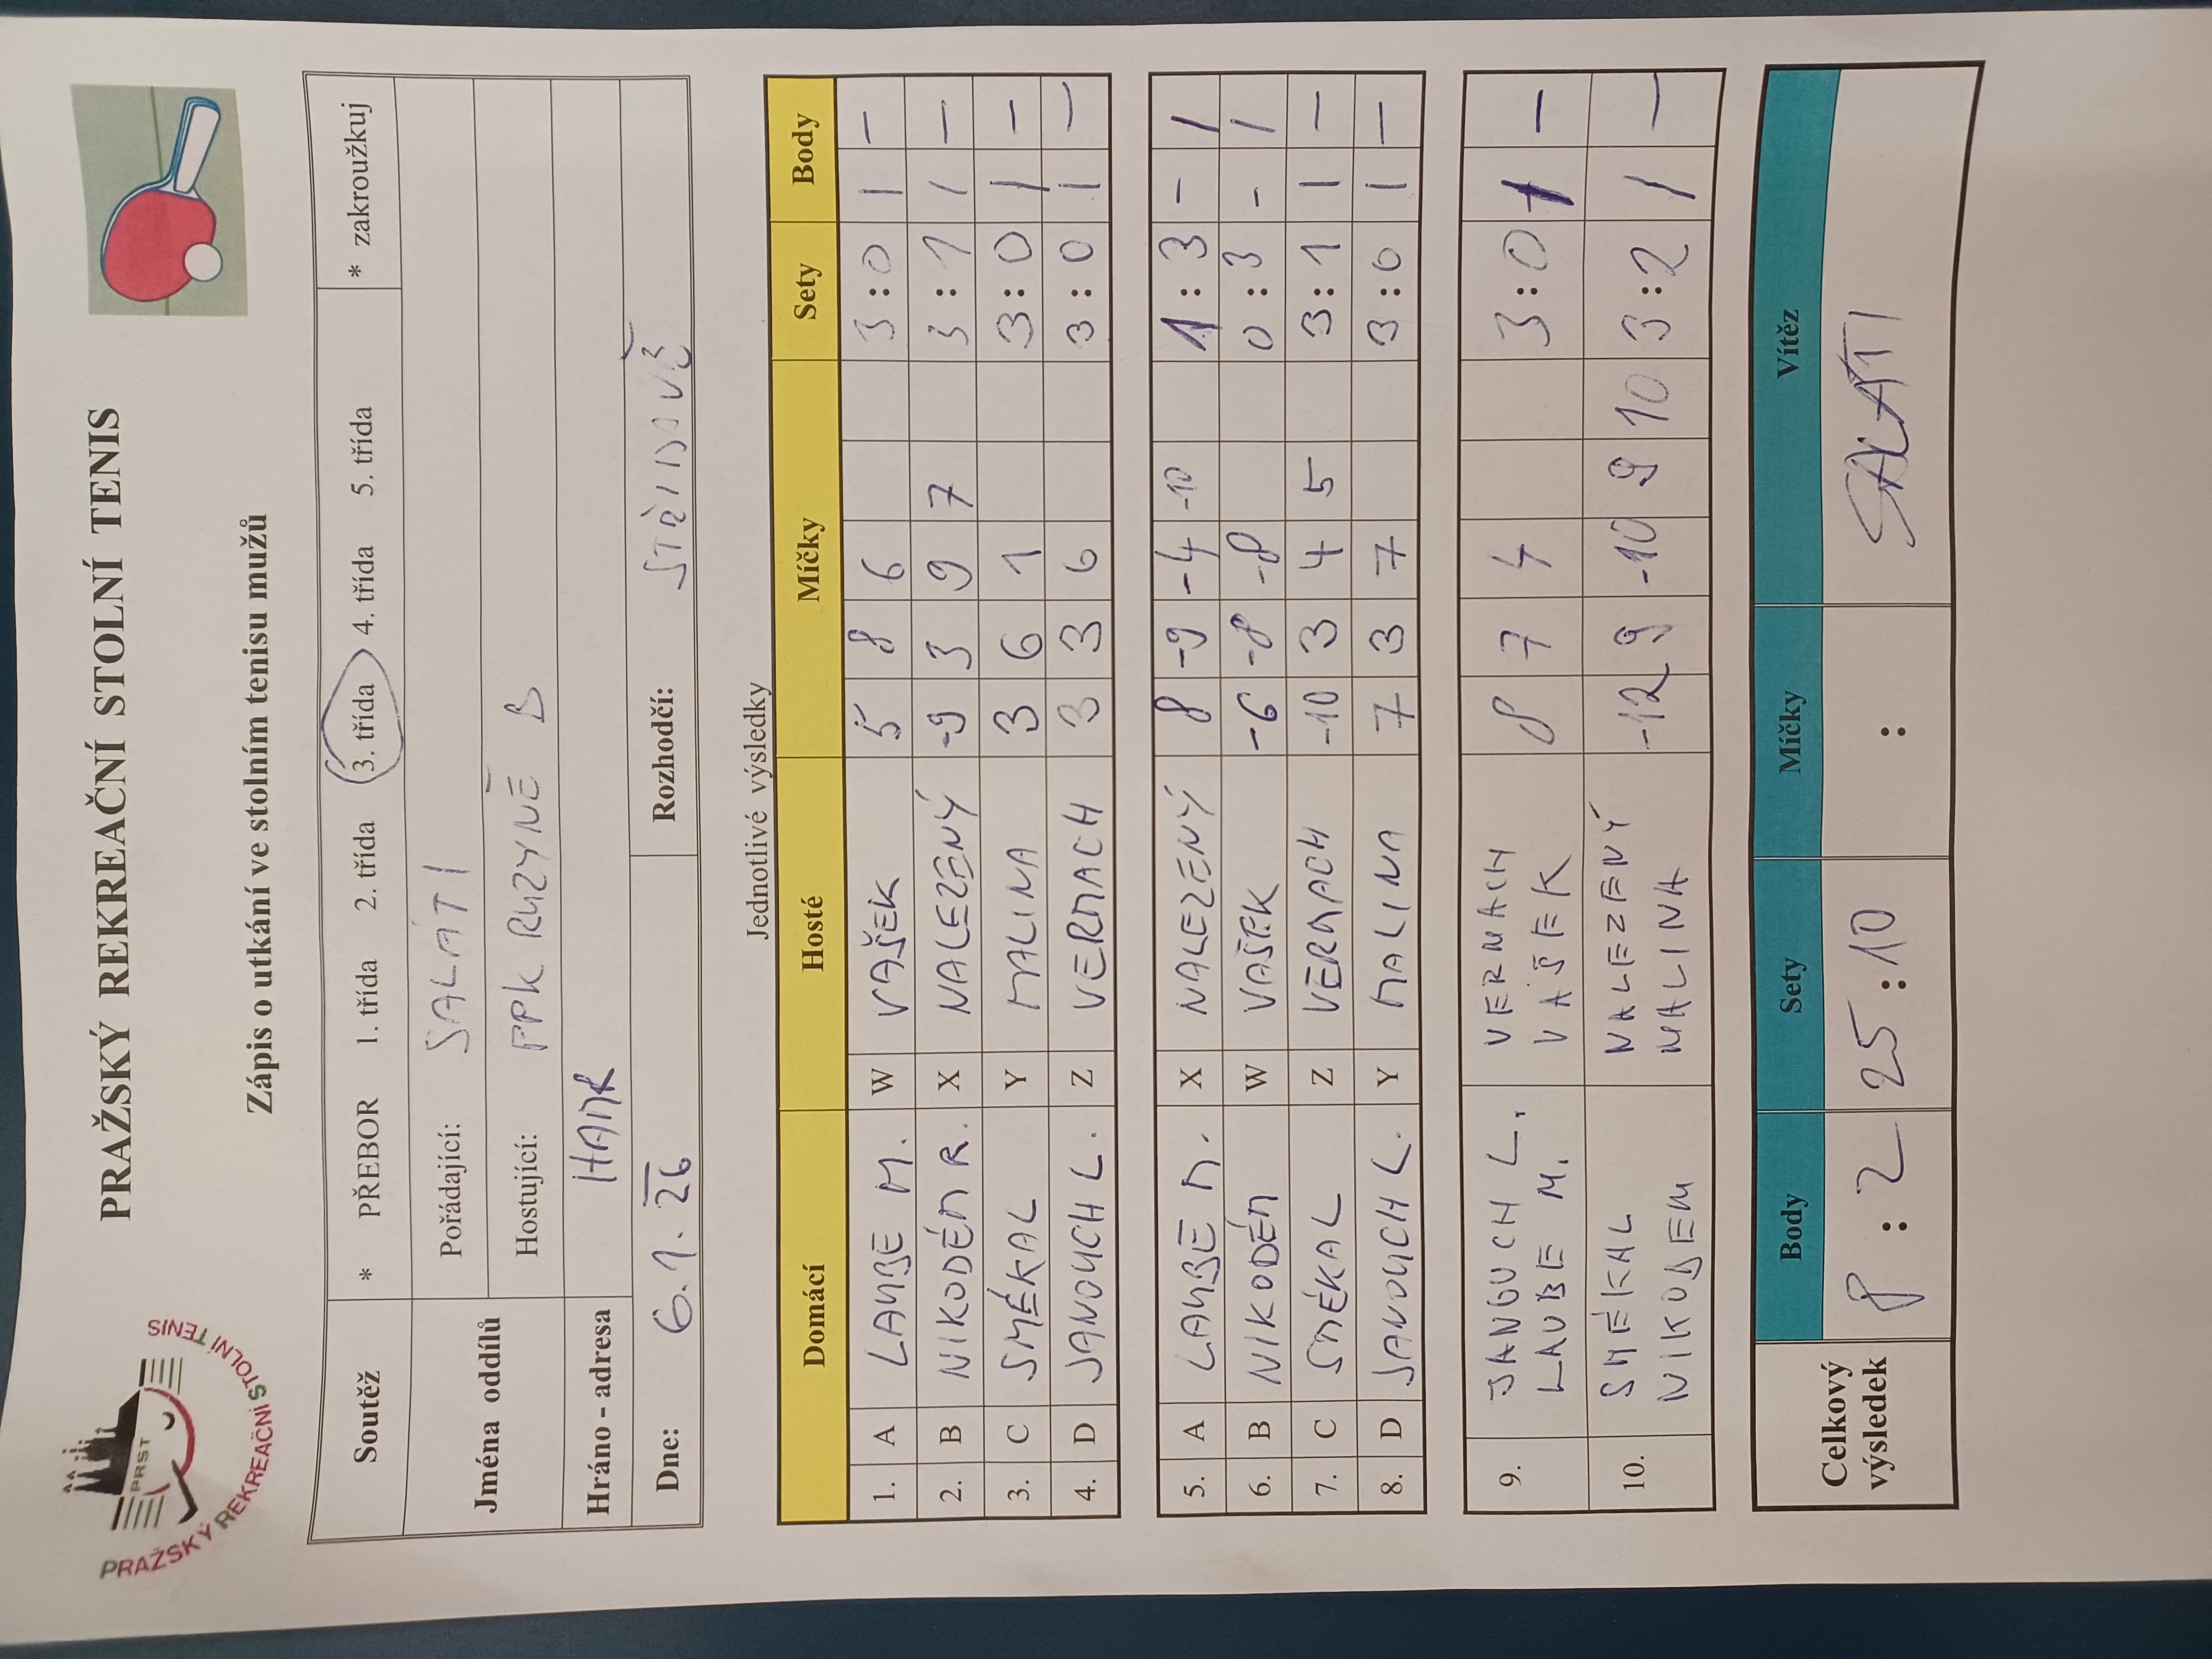 PRAŽSKÝ REKREAČNÍ STOLNÍ TENIS
PRST
PRAŽSKÝ REKREAČNÍ STOLNÍ TENIS
Zápis o utkání ve stolním tenisu mužů
Soutěž * PŘEBOR 1. třída 2. třída 3. třída 4. třída 5. třída * zakroužkuj
Jména oddílů
Pořádající: SALÁTI
Hostující: FPK RUZYNĚ B
Hráno - adresa HAMR
Dne: 6.1.26 Rozhodčí:
Jednotlivé výsledky
Domácí Hosté Míčky Sety Body
1. A LAUBE M. W VAŠEK 5 8 6 3:0 1 –
2. B NIKODÉM R. X NALEZENÝ -9 3 9 7 3:1 1 –
3. C SMÉKAL Y MALINA 3 6 1 3:0 1 –
4. D JANOUCH L. Z VERMACH 3 3 6 3:0 1 –
5. A LAUBE M. X NALEZENÝ 8 -9 -4 -10 1:3 – 1
6. B NIKODÉM W VAŠEK -6 -8 -8 0:3 – 1
7. C SMÉKAL Z VERMACH -10 3 4 5 3:1 1 –
8. D JANOUCH L. Y MALINA 7 3 7 3:0 1 –
9. JANOUCH L. VERMACH 8 7 4 3:0 1 –
LAUBE M. VAŠEK
10. SMÉKAL NALEZENÝ -12 9 -10 9 10 3:2 1 –
NIKODEM MALINA
Celkový výsledek Body Sety Míčky Vítěz
8:2 25:10 : SALÁTI